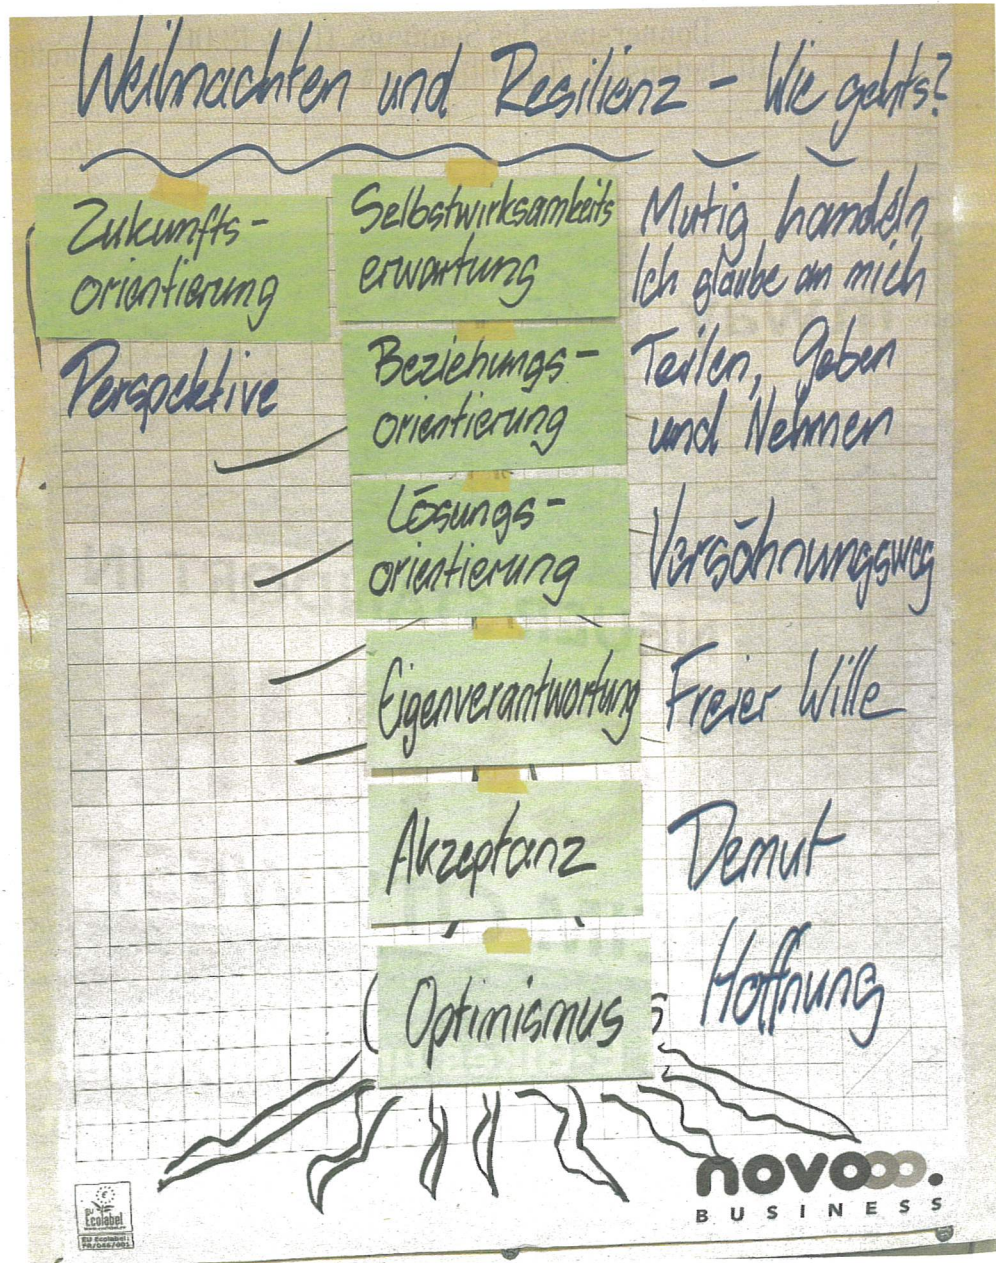 Weihnachten und Resilienz - Wie gehts?
Zukunfts-
orientierung
Perspektive
Selbstwirksamkeits
erwartung
Mutig handeln
Ich glaube an mich
Beziehungs-
orientierung
Teilen, Geben
und Nehmen
Lösungs-
orientierung
Versöhnungsweg
Eigenverantwortung
Freier Wille
Akzeptanz
Demut
Optimismus
Hoffnung
novo
BUSINESS
EU
Ecolabel
EU Ecolabel:
FR/046/001